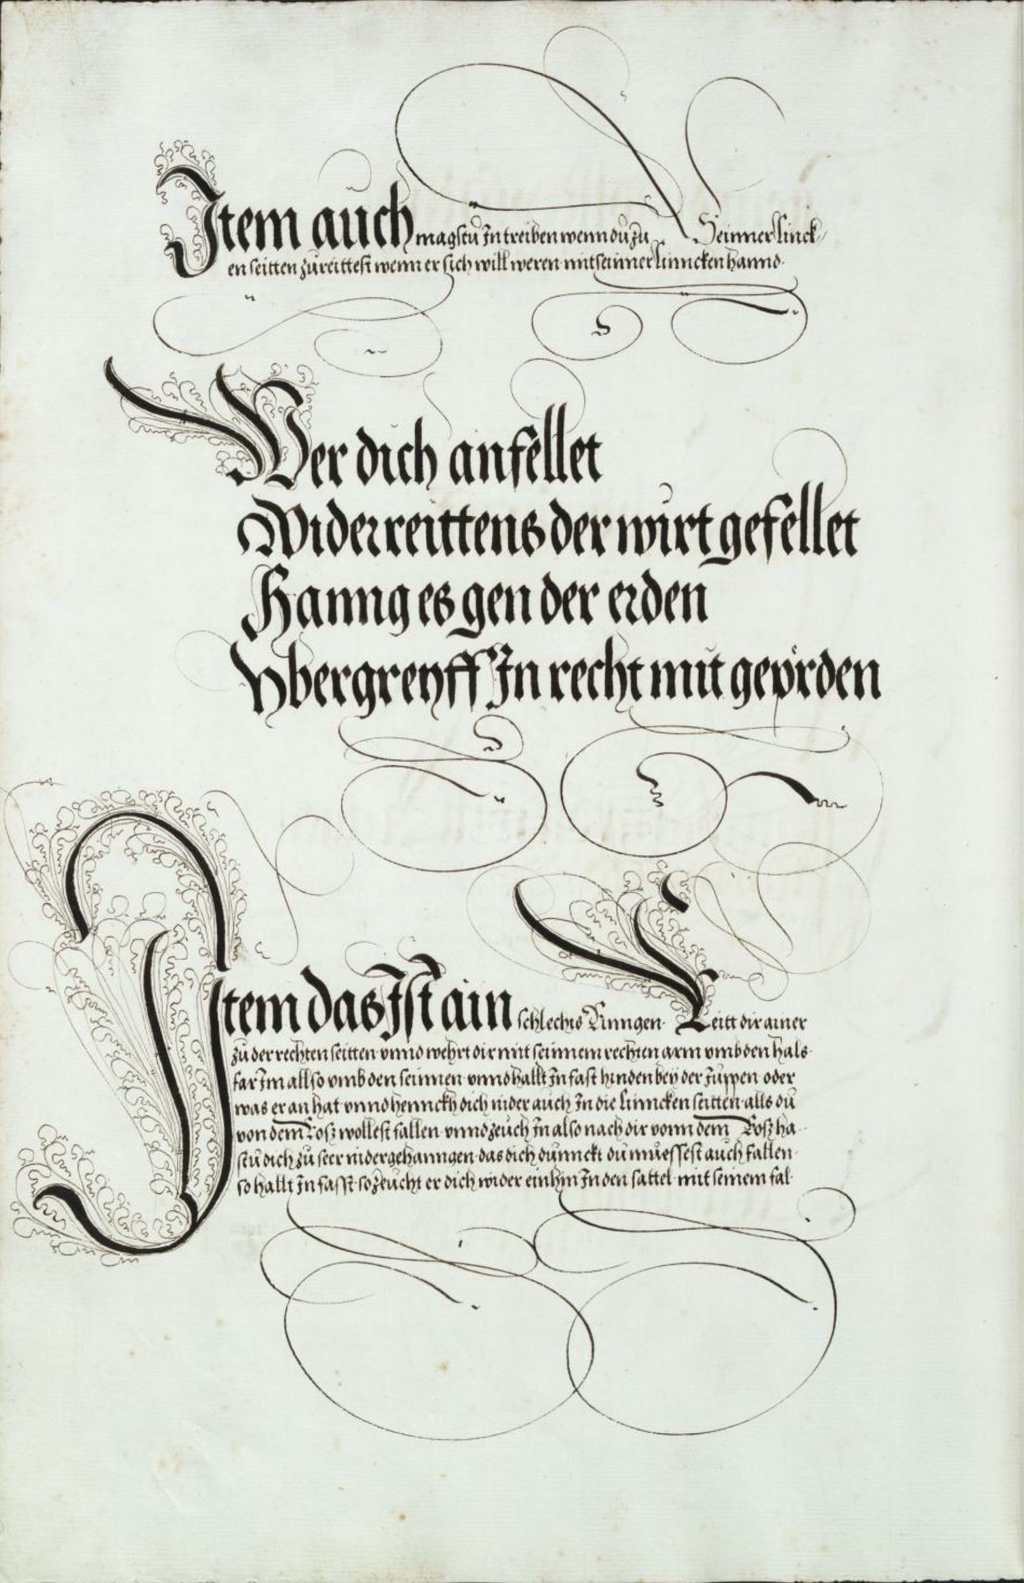 Item auch magstu In treiben wenn du zu Seinner linck
en seitten zu reittest wenn er sich will weren mit seinner linncken hannd.
Wer dich anfellet
Wider reittens der wirt gefellet
Hanng es gen der erden
Vbergreyff In recht mit
Item das Ist ain schlechts Ringen. Reitt dir ainer
zu der rechten seitten vnnd wehrt dir mit seinnem rechten arm vmb den hals.
far Im allso vmb den seinnen vnnd hallt In fast hinden bey der Juppen oder
was er an hat vnnd hennckh dich nider auch In die linncken seitten alls du
von dem Rosz wollest fallen vnnd zeuch In also nach dir vonn dem Rosz ha
stu dich zu seer nidergehanngen das dich dunnckt du muessest auch fallen
so hallt In fasst so zeucht er dich wider einhin In den sattel mit seinem fal